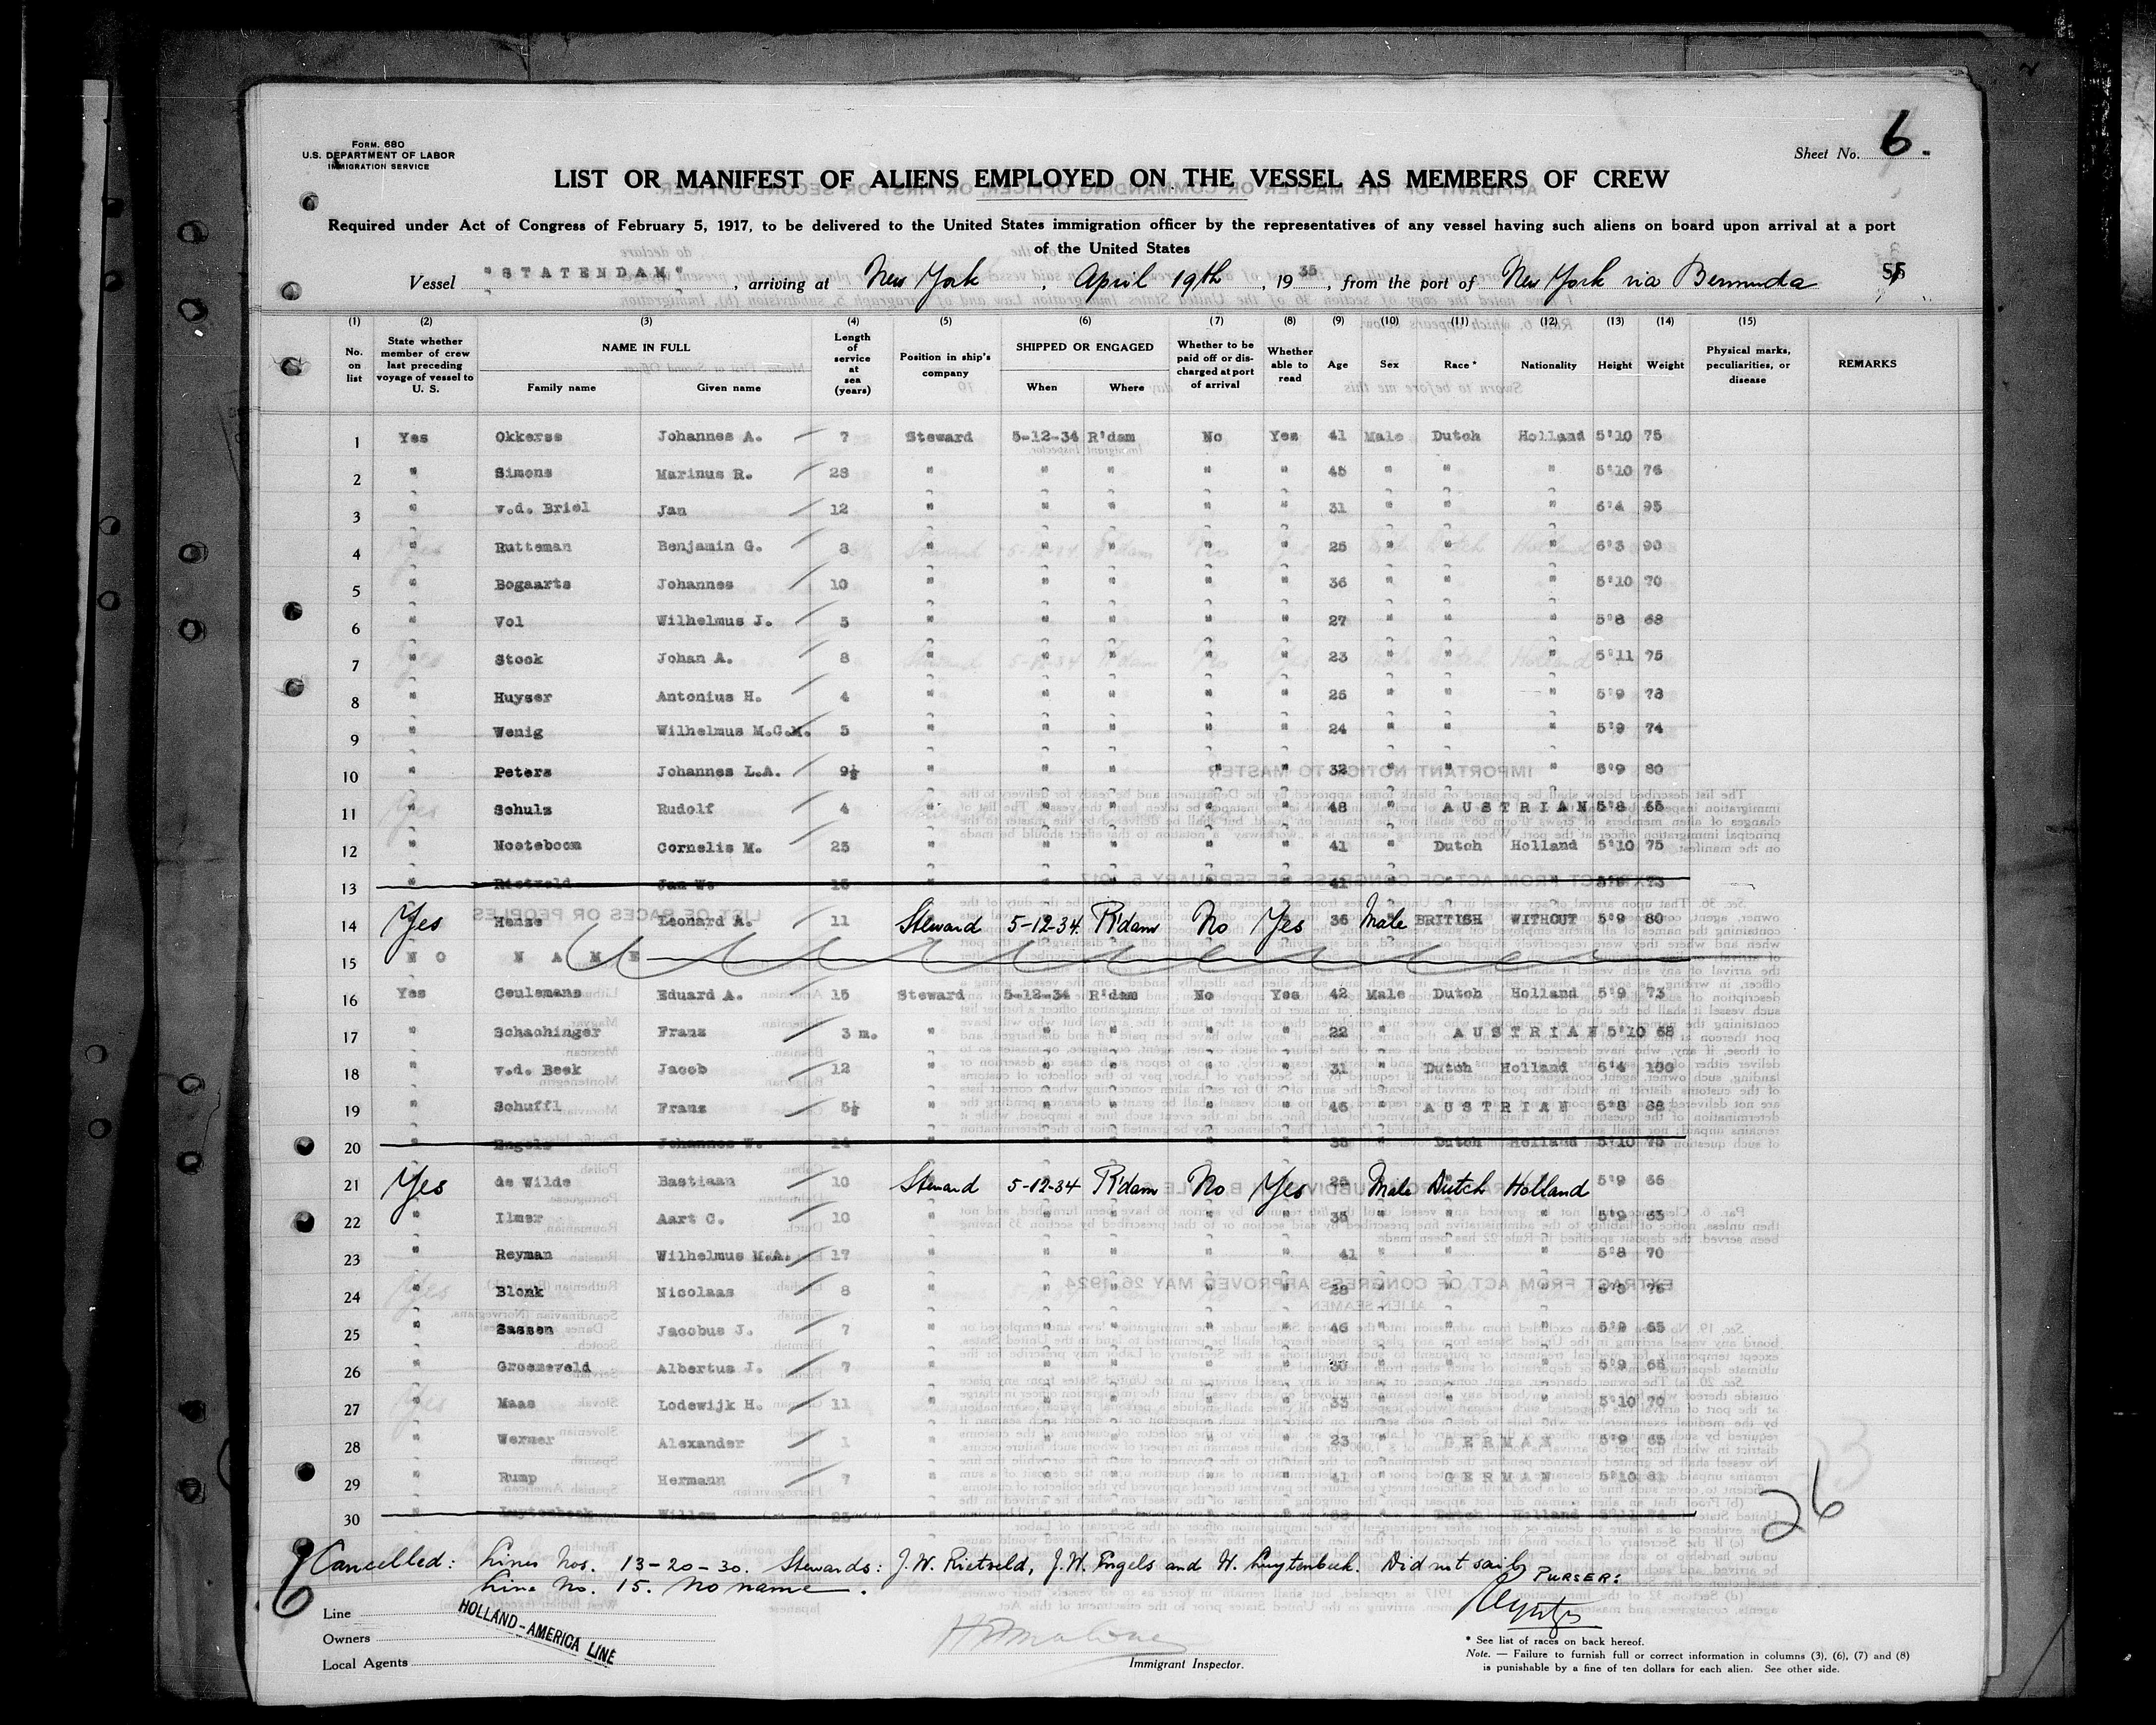 FORM. 680
U.S. DEPARTMENT OF LABOR
IMMIGRATION SERVICE
Sheet No. 6.
LIST OR MANIFEST OF ALIENS EMPLOYED ON THE VESSEL AS MEMBERS OF CREW
Required under Act of Congress of February 5, 1917, to be delivered to the United States immigration officer by the representatives of any vessel having such aliens on board upon arrival at a port
of the United States
Vessel "STATENDAM", arriving at New York, April 19th, 1935, from the port of New York via Bermuda
(1) (2) (3) (4) (5) (6) (7) (8) (9) (10) (11) (12) (13) (14) (15)
No. on list State whether member of crew last preceding voyage of vessel to U. S. NAME IN FULL Family name Given name Length of service at sea (years) Position in ship's company SHIPPED OR ENGAGED When Where Whether to be paid off or discharged at port of arrival Whether able to read Age Sex Race* Nationality Height Weight Physical marks, peculiarities, or disease REMARKS
1 Yes Okkerse Johannes A. 7 Steward 5-12-34 R'dam No Yes 41 Male Dutch Holland 5'10 75
2 " Simons Marinus R. 28 " " " " " 45 " " " 5'10 76
3 " v.d. Briel Jan 12 " " " " " 31 " " " 6'4 95
4 " Rutteman Benjamin G. 8 " " " " " 25 " " " 6'3 90
5 " Bogaarts Johannes 10 " " " " " 36 " " " 5'10 70
6 " Vol Wilhelmus J. 5 " " " " " 27 " " " 5'8 68
7 " Stock Johan A. 8 " " " " " 23 " " " 5'11 75
8 " Huyser Antonius H. 4 " " " " " 25 " " " 5'9 78
9 " Wenig Wilhelmus M.C.M. 5 " " " " " 24 " " " 5'9 74
10 " Peters Johannes L.A. 9½ " " " " " 32 " " " 5'9 80
11 " Schulz Rudolf 4 " " " " " 48 " AUSTRIAN 5'8 65
12 " Nooteboom Cornelis M. 25 " " " " " 41 " Dutch Holland 5'10 75
13 " Rietveld Jan W. 15 " " " " " 41 " " " 5'9 73
14 Yes Hense Leonard A. 11 Steward 5-12-34 R'dam No Yes 36 Male BRITISH WITHOUT 5'9 80
15 NO NAME
16 Yes Ceulemans Eduard A. 15 Steward 5-12-34 R'dam No Yes 42 Male Dutch Holland 5'9 73
17 " Schachinger Franz 3 m. " " " " " 22 " AUSTRIAN 5'10 68
18 " v.d. Beek Jacob 12 " " " " " 31 " Dutch Holland 6'4 100
19 " Schuffl Franz 5½ " " " " " 46 " AUSTRIAN 5'8 68
20 " Engels Johannes W. 14 " " " " " 35 " Dutch Holland 5'10 75
21 Yes de Wilde Bastiaan 10 Steward 5-12-34 R'dam No Yes 25 Male Dutch Holland 5'9 66
22 " Ilmer Aart C. 10 " " " " " 35 " " " 5'9 63
23 " Reyman Wilhelmus M.A. 17 " " " " " 41 " " " 5'8 70
24 " Blonk Nicolaas 8 " " " " " 28 " " " 75
25 " Sassen Jacobus J. 7 " " " " " 46 " " " 5'9 65
26 " Groeneveld Albertus J. 7 " " " " " 30 " " " 5'9 65
27 " Maas Lodewijk H. 11 " " " " " 33 " " " 5'10 70
28 " Werner Alexander 1 " " " " " 23 " GERMAN 5'9 65
29 " Rump Hermann 7 " " " " " 41 " GERMAN 5'10 81
30 " Luytenbeek Willem 25 " " " " " " Dutch Holland 5'11
26
Cancelled: Lines Nos. 13-20-30. Stewards: J.W. Rietveld, J.W. Engels and W. Luytenbeek. Did not sail
Line No. 15. No name.
PURSER:
6
Line HOLLAND-AMERICA LINE
Owners
Local Agents
Immigrant Inspector.
* See list of races on back hereof.
Note. — Failure to furnish full or correct information in columns (3), (6), (7) and (8)
is punishable by a fine of ten dollars for each alien. See other side.